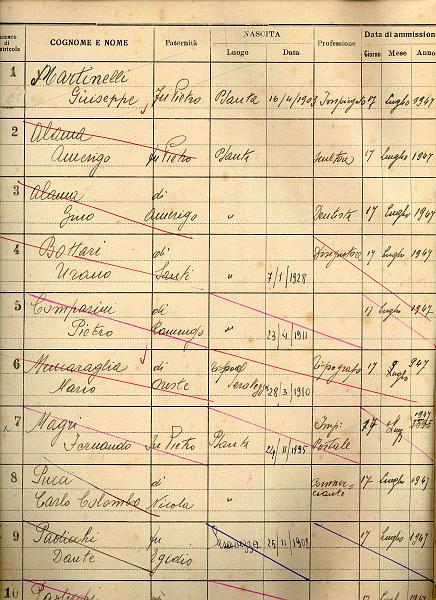 Numero di matricola COGNOME E NOME Paternità NASCITA Luogo Data Professione Data di ammissione Giorno Mese Anno
1 Martinelli
Giuseppe fu Pietro Pianta 16/4/1903 Impiegato 17 Luglio 1947
2 Alama
Amerigo fu Pietro Pianta scultore 17 Luglio 1947
3 Alama di
Gino Amerigo " Dentista 17 Luglio 1947
4 Bottari di Disegnatore 17 Luglio 1947
Urano Santi " 7/1/1928
5 Comparini di 17 Luglio 1947
Pietro Ramengo " 23/4/1911
6 di Tipografo 17 Luglio 947
Mario Oreste 28/3/1910
7 Magri Imp: 17 Lug 1947
Fernando fu Pietro Pianta 24/11/1895 Postale
8 Puca di commer= 17 Luglio 1947
Carlo Colombo Nicola " ciante
9 fu Seravezza 25/11/1908 17 Luglio 1947
Dante Egidio
10